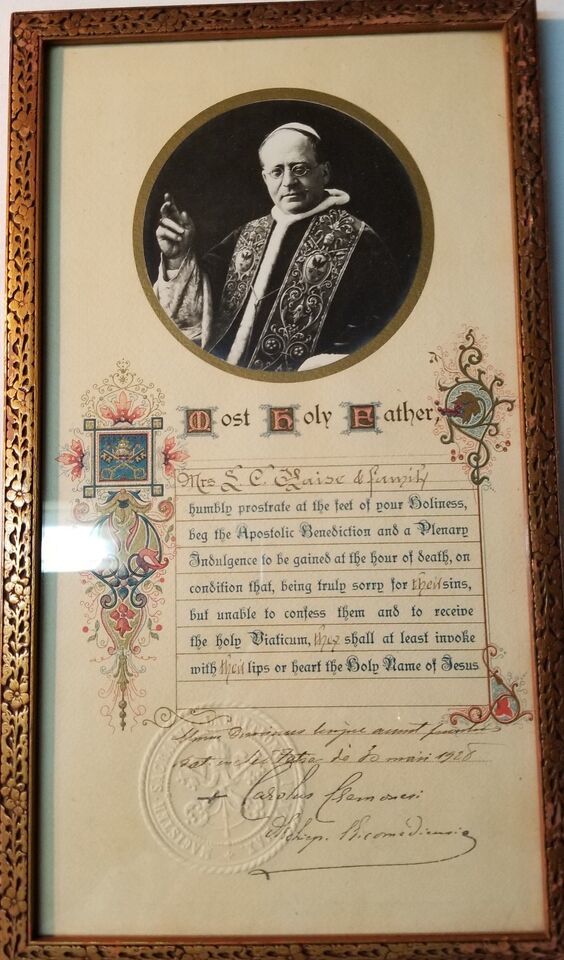 Most Holy Father,
Mrs L. C. & family
humbly prostrate at the feet of your Holiness,
beg the Apostolic Benediction and a Plenary
Indulgence to be gained at the hour of death, on
condition that, being truly sorry for their sins,
but unable to confess them and to receive
the holy Viaticum, they shall at least invoke
with their lips or heart the Holy Name of Jesus
1928
+ Carolus Cremonesi
Archiep. Nicomediensis